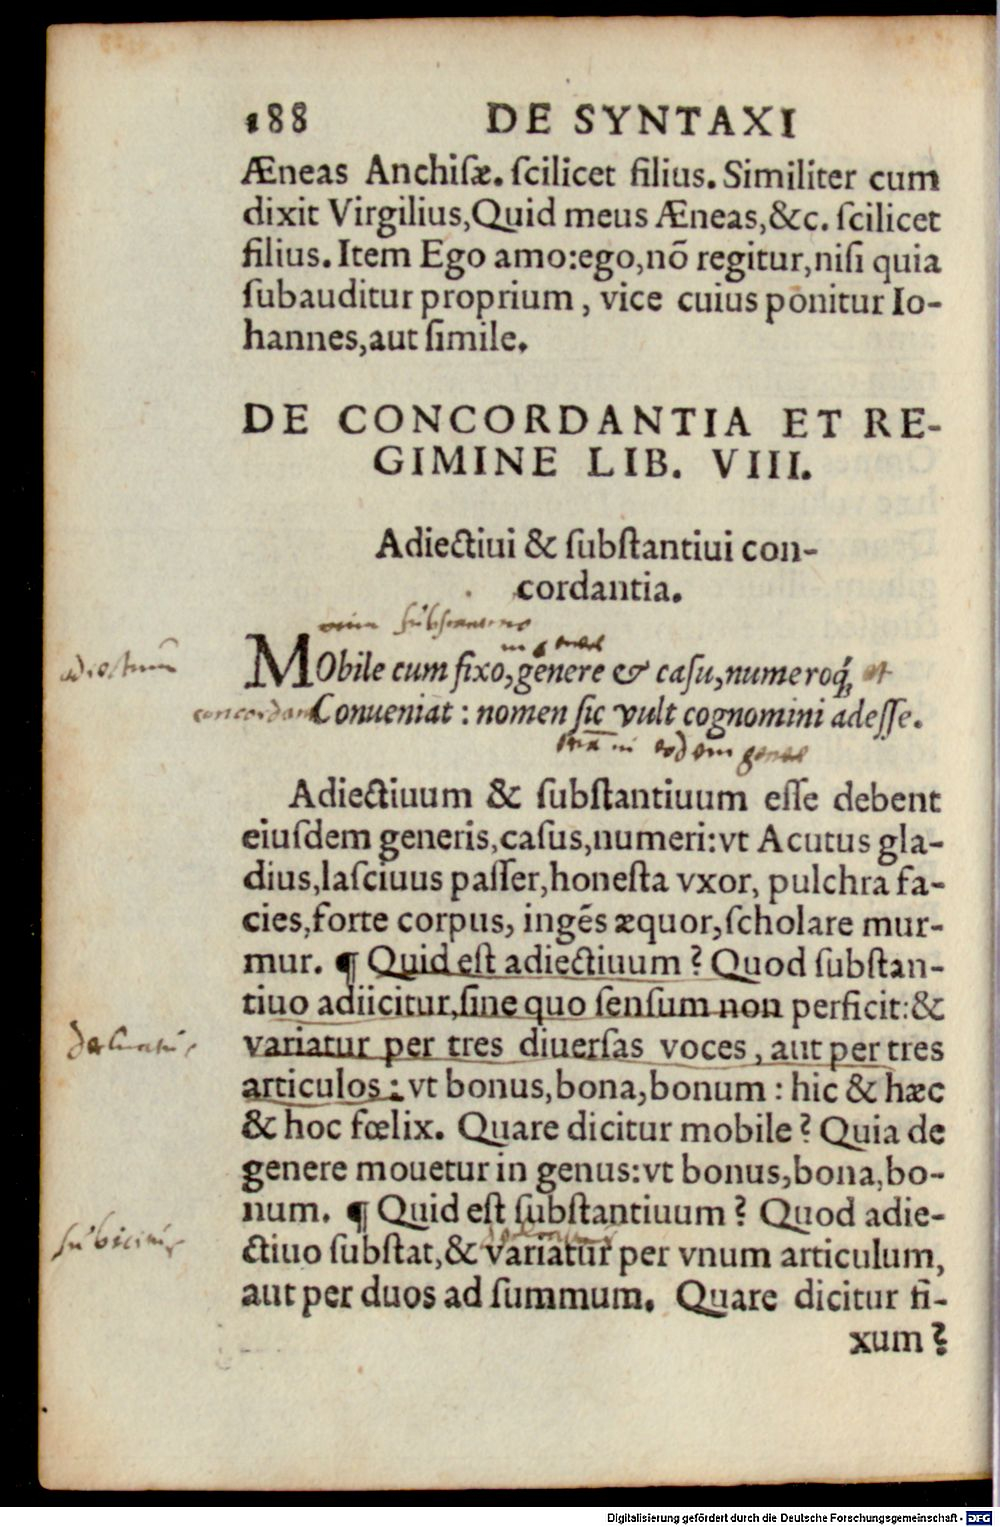 188 DE SYNTAXI
Æneas Anchiſæ. ſcilicet filius. Similiter cum
dixit Virgilius, Quid meus Æneas, &c. ſcilicet
filius. Item Ego amo: ego, nõ regitur, niſi quia
ſubauditur proprium, vice cuius ponitur Io-
hannes, aut ſimile.
DE CONCORDANTIA ET RE-
GIMINE LIB. VIII.
Adiectiui & ſubſtantiui con-
cordantia.
MObile cum fixo, genere & caſu, numeroq́;
Conueniat: nomen ſic vult cognomini adeſſe.
Adiectiuum & ſubſtantiuum eſſe debent
eiuſdem generis, caſus, numeri: vt Acutus gla-
dius, laſciuus paſſer, honeſta vxor, pulchra fa-
cies, forte corpus, ingẽs æquor, ſcholare mur-
mur. ¶ Quid eſt adiectiuum? Quod ſubſtan-
tiuo adiicitur, ſine quo ſenſum non perficit: &
variatur per tres diuerſas voces, aut per tres
articulos: vt bonus, bona, bonum: hic & hæc
& hoc fœlix. Quare dicitur mobile? Quia de
genere mouetur in genus: vt bonus, bona, bo-
num. ¶ Quid eſt ſubſtantiuum? Quod adie-
ctiuo ſubſtat, & variatur per vnum articulum,
aut per duos ad ſummum. Quare dicitur fi-
xum?
Digitalisierung gefördert durch die Deutsche Forschungsgemeinschaft - DFG